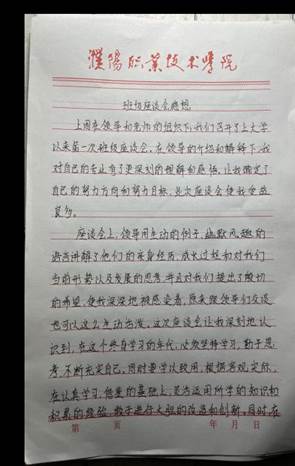 濮阳职业技术学院
班级座谈会感想
上周在领导和老师的组织下,我们召开了上大学
以来第一次班级座谈会,在领导的介绍和解释下,我
对自己的专业有了更深刻的理解和感悟,让我确定了
自己的努力方向和努力目标,这次座谈会使我受益
良多。
座谈会上,领导用生动的例子,幽默风趣的
语言讲解了他们的亲身经历,成长过程和对我们
当前形势以及发展的思考,并且对我们提出了殷切
的希望,使我深深地被感染着,原来跟领导们交谈
也可以这么生动活泼,这次座谈会让我深刻地认
识到,在这个终身学习的年代,必须坚持学习,勤于思
考,不断充实自己,同时要学以致用,根据客观实际,
在认真学习,借鉴的基础上,灵活运用所学的知识和
积累的经验,敢于进行大胆的改造和创新,同时,在
第 页 年 月 日